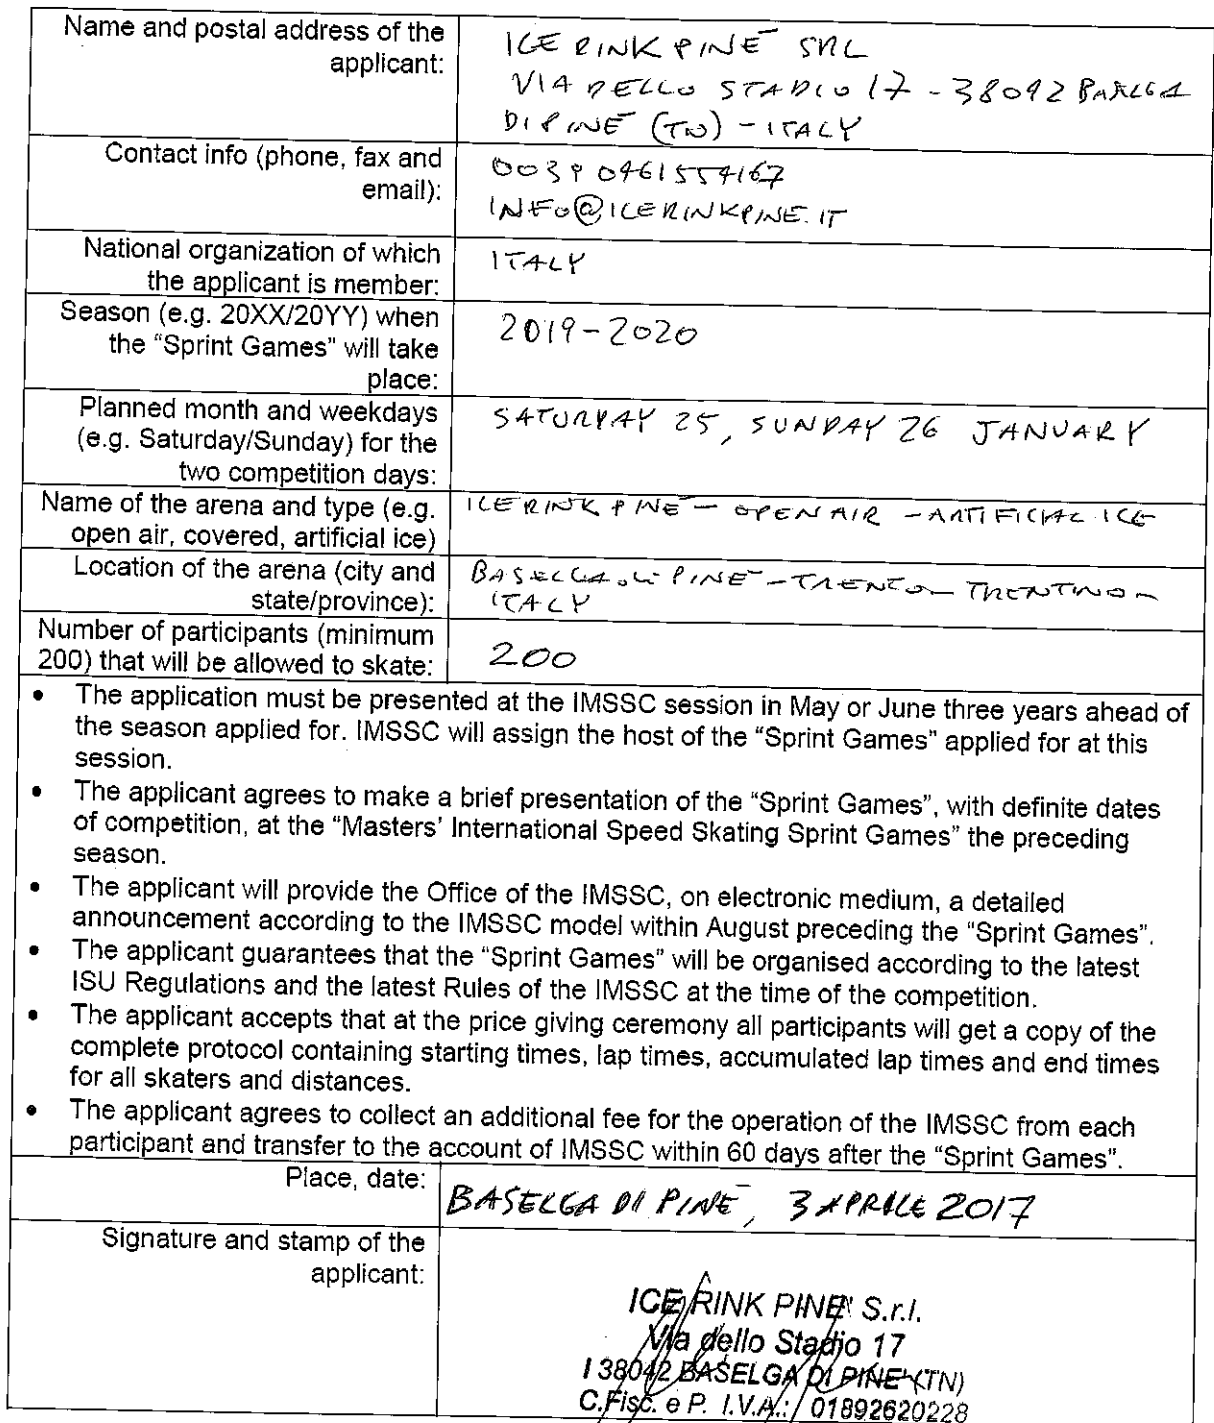 Name and postal address of the applicant:
ICE RINK PINE' SRL
VIA DELLO STADIO 17 - 38042 BASELGA
DI PINE' (TN) - ITALY
Contact info (phone, fax and email):
0039 0461554167
INFO@ICERINKPINE.IT
National organization of which the applicant is member:
ITALY
Season (e.g. 20XX/20YY) when the “Sprint Games” will take place:
2019-2020
Planned month and weekdays (e.g. Saturday/Sunday) for the two competition days:
SATURDAY 25, SUNDAY 26 JANUARY
Name of the arena and type (e.g. open air, covered, artificial ice)
ICE RINK PINE' - OPEN AIR - ARTIFICIAL ICE
Location of the arena (city and state/province):
BASELGA di PINE' - TRENTO - TRENTINO -
ITALY
Number of participants (minimum 200) that will be allowed to skate:
200
• The application must be presented at the IMSSC session in May or June three years ahead of
the season applied for. IMSSC will assign the host of the “Sprint Games” applied for at this
session.
• The applicant agrees to make a brief presentation of the “Sprint Games”, with definite dates
of competition, at the “Masters’ International Speed Skating Sprint Games” the preceding
season.
• The applicant will provide the Office of the IMSSC, on electronic medium, a detailed
announcement according to the IMSSC model within August preceding the “Sprint Games”.
• The applicant guarantees that the “Sprint Games” will be organised according to the latest
ISU Regulations and the latest Rules of the IMSSC at the time of the competition.
• The applicant accepts that at the price giving ceremony all participants will get a copy of the
complete protocol containing starting times, lap times, accumulated lap times and end times
for all skaters and distances.
• The applicant agrees to collect an additional fee for the operation of the IMSSC from each
participant and transfer to the account of IMSSC within 60 days after the “Sprint Games”.
Place, date:
BASELGA DI PINE', 3 APRILE 2017
Signature and stamp of the applicant:
ICE RINK PINE' S.r.l.
Via dello Stadio 17
I 38042 BASELGA DI PINE' (TN)
C.Fisc. e P. I.V.A.: 01892620228